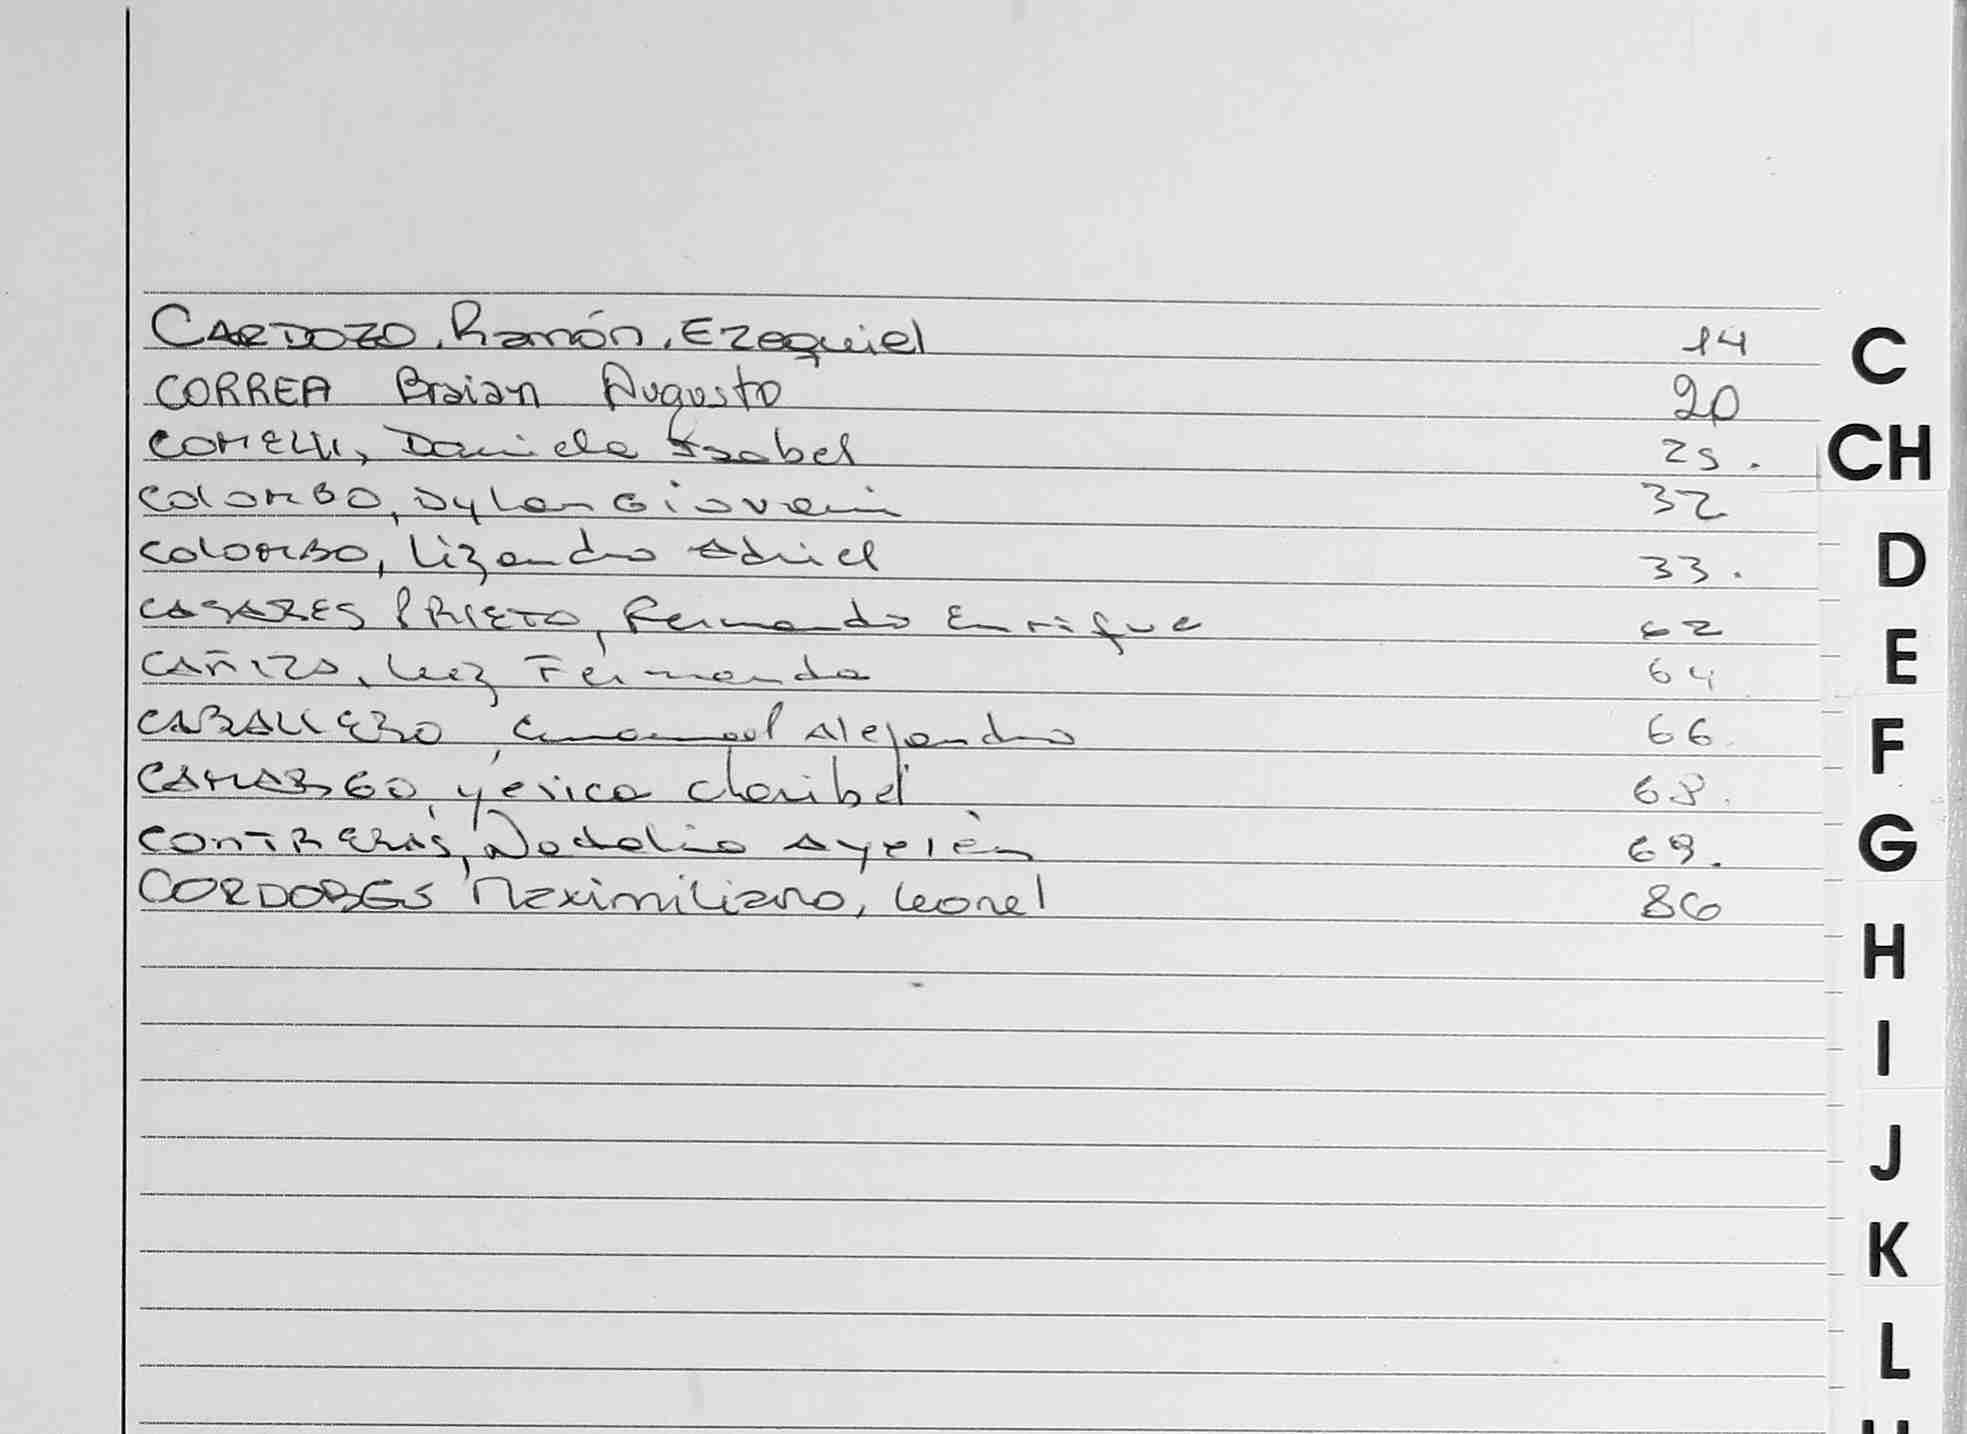 CARDOZO, Ramón, Ezequiel 14
CORREA Braian Augusto 20
COMELLI, Daniela Isabel 25.
COLOMBO, Dylan Giovani 32
COLOMBO, Lizandro Adriel 33.
CASARES PRIETO, Fernando Enrique 62
CAÑIZO, Luz Fernanda 64
CABALLERO, Emanuel Alejandro 66.
CAMARGO, Yesica Claribel 68.
CONTRERAS, Natalia Ayelén 69.
CORDOBES Maximiliano, Leonel 86
C
CH
D
E
F
G
H
I
J
K
L